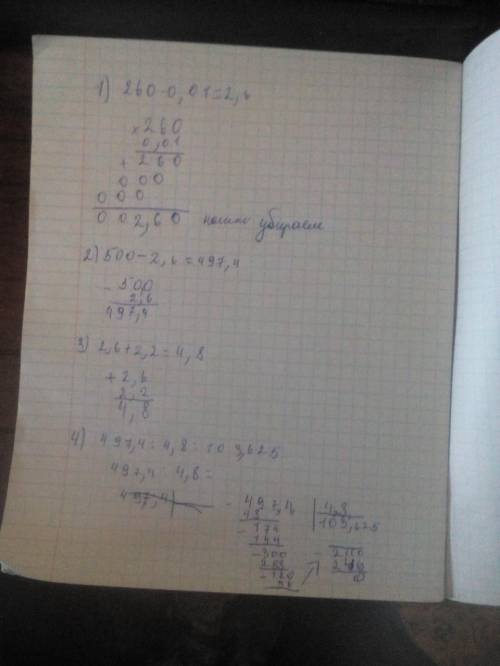 1) 260·0,01=2,6
×260
0,01
+ 260
000
000
002,60 нолики убираем
2) 500-2,6=497,4
- 500
2,6
497,4
3) 2,6+2,2=4,8
+ 2,6
2,2
4,8
4) 497,4:4,8=103,625
497,4:4,8=
497,4
- 497,4 | 4,8
48 | 103,625
- 174
144
- 300
288
- 120
96
- 240
240
0